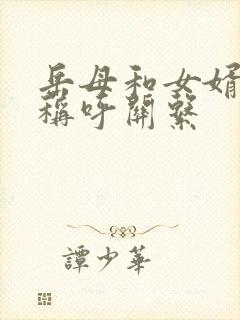 岳母和女婿
稱呼關繫
譚少華